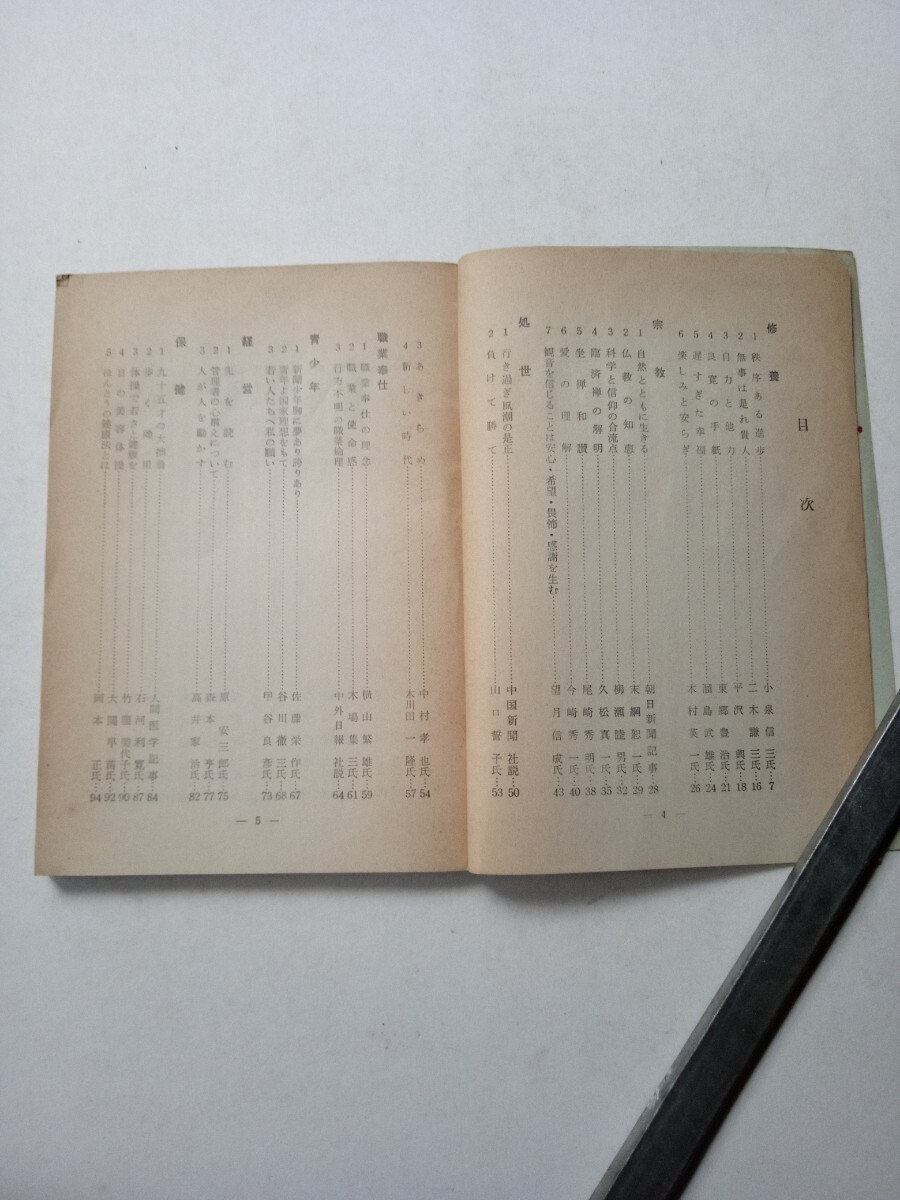 目次
修養
1 秩序ある進歩 小泉信三氏…7
2 無事は是れ貴人 二木謙三氏…16
3 自力と他力 平沢興氏…18
4 良寛の手紙 東郷豊治氏…21
5 遅すぎた幸福 福島武雄氏…24
6 楽しみと安らぎ 木村英一氏…26
宗教
1 自然とともに生きる 朝日新聞記事…28
2 仏教の知恵 末綱恕一氏…29
3 科学と信仰の合流点 柳瀬睦男氏…32
4 臨済禅の解明 久松真一氏…35
5 坐禅和讃 尾崎秀明氏…38
6 愛の理解 今崎秀一氏…40
7 観音を信じることは安心・希望・畏怖・感謝を生む 望月信成氏…43
処世
1 行き過ぎ風潮の是正 中国新聞社説…50
2 負けて勝て 山口誓子氏…53
— 4 —
3 あきらめ 中村孝也氏…54
4 新しい時代 木川田一隆氏…57
職業奉仕
1 職業奉仕の理念 横山繁雄氏…59
2 職業と使命感 木場集三氏…61
3 行方不明の職業倫理 中外日報社説…64
青少年
1 新聞少年胸に夢あり誇りあり 佐藤栄作氏…67
2 青年よ国家理想をもて 谷川徹三氏…68
3 若い人たちへ私の願い 甲谷良彦氏…73
経営
1 先を読む 原安三郎氏…75
2 管理者の心構えについて 森本亨氏…77
3 人が人を動かす 高井家治氏…82
保健
1 九十五才の大後 人間医学記事…84
2 歩く効用 石河利寛氏…87
3 体操で若さと健康を 竹腰美代子氏…90
4 目の美容体操 大関早苗氏…92
5 ほんとうの健康法とは 岡本正氏…94
— 5 —